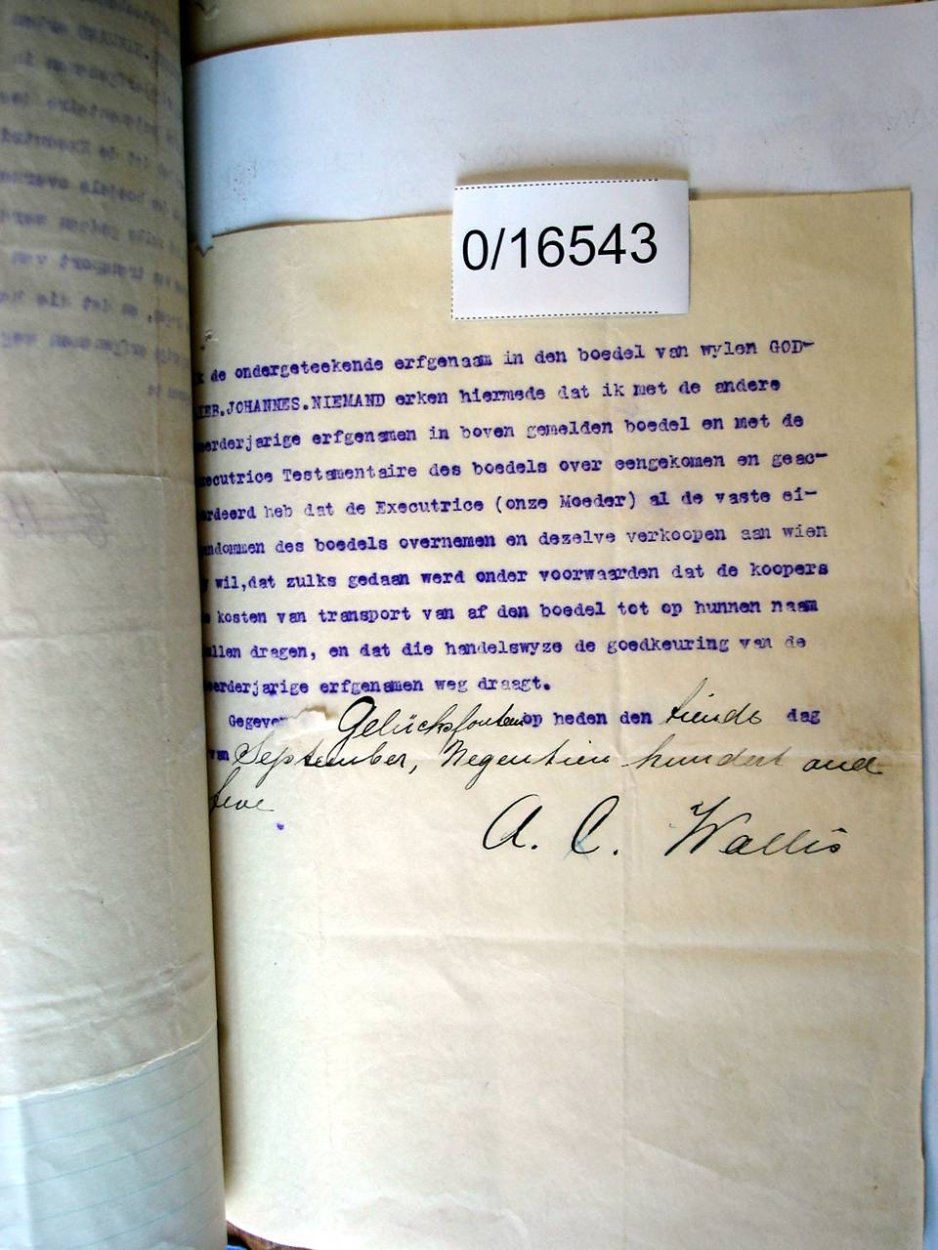 0/16543
k de ondergeteekende erfgenaam in den boedel van wylen GOD-
IEB.JOHANNES.NIEMAND erken hiermede dat ik met de andere
eerderjarige erfgenamen in boven gemelden boedel en met de
xecutrice Testamentaire des boedels over eengekomen en geac-
ordeerd heb dat de Executrice (onze Moeder) al de vaste ei-
ndommen des boedels overnemen en dezelve verkoopen aan wien
y wil,dat zulks gedaan werd onder voorwaarden dat de koopers
e kosten van transport van af den boedel tot op hunnen naam
ullen dragen, en dat die handelswyze de goedkeuring van de
eerderjarige erfgenamen weg draagt.
Gegeven Gelücksfontein op heden den tiende dag
van September, Negentien hundert and
A. C. Wallis